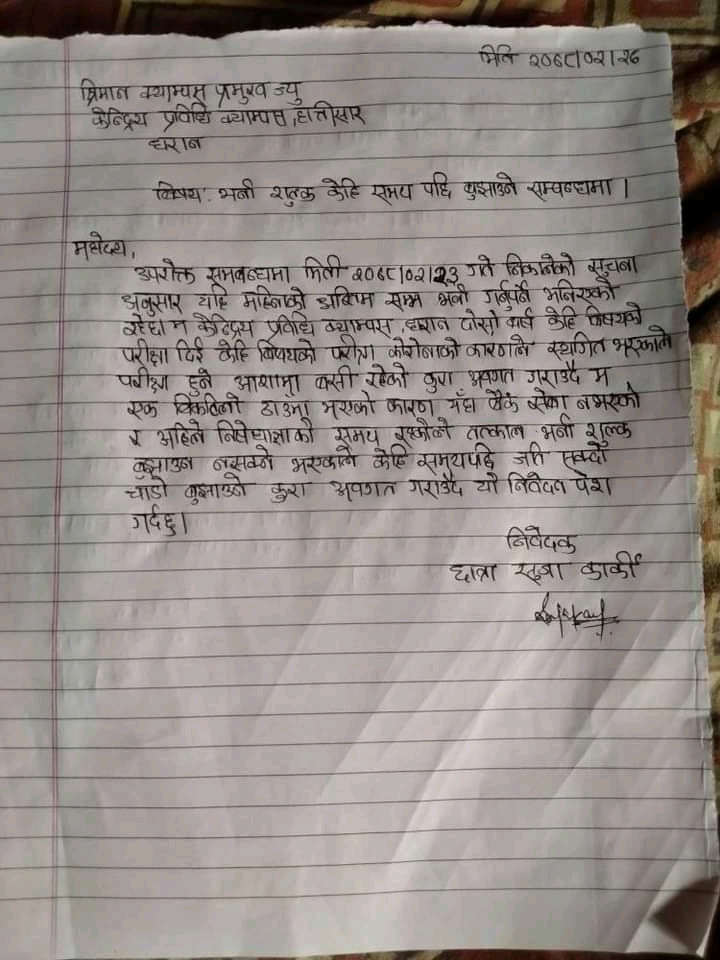 मिति २०७८।०२।२६
श्रिमान क्याम्पस प्रमुख ज्यु
केन्द्रिय प्रविधि क्याम्पस, हात्तीसार
धरान
विषय: भर्ना शुल्क केहि समय पछि बुझाउने सम्बन्धमा ।
महोदय,
उपरोक्त सम्बन्धमा मिती २०७८।०२।२३ गते निकालेको सुचना
अनुसार यहि महिनाको अन्तिम सम्म भर्ना गर्नुपर्ने भनिएको
रहेछ। म केन्द्रिय प्रविधि क्याम्पस, धरान दोस्रो बर्ष केहि विषयको
परीक्षा दिई केहि विषयको परीक्षा कोरोनाको कारणले स्थगित भएकाले
परीक्षा हुने आशामा बसी रहेको कुरा अवगत गराउदै म
एक विकट ठाउँमा भएको कारण यँहा बैंक सेवा नभएको
र अहिले निषेधाज्ञाको समय रहकोले तत्काल भर्ना शुल्क
बुझाउन नसक्ने भएकाले केहि समयपछि जति सक्दो
चाँडो बुझाउने कुरा अवगत गराउदै यो निवेदन पेश
गर्दछु।
निवेदक
छात्रा सृजा कार्की